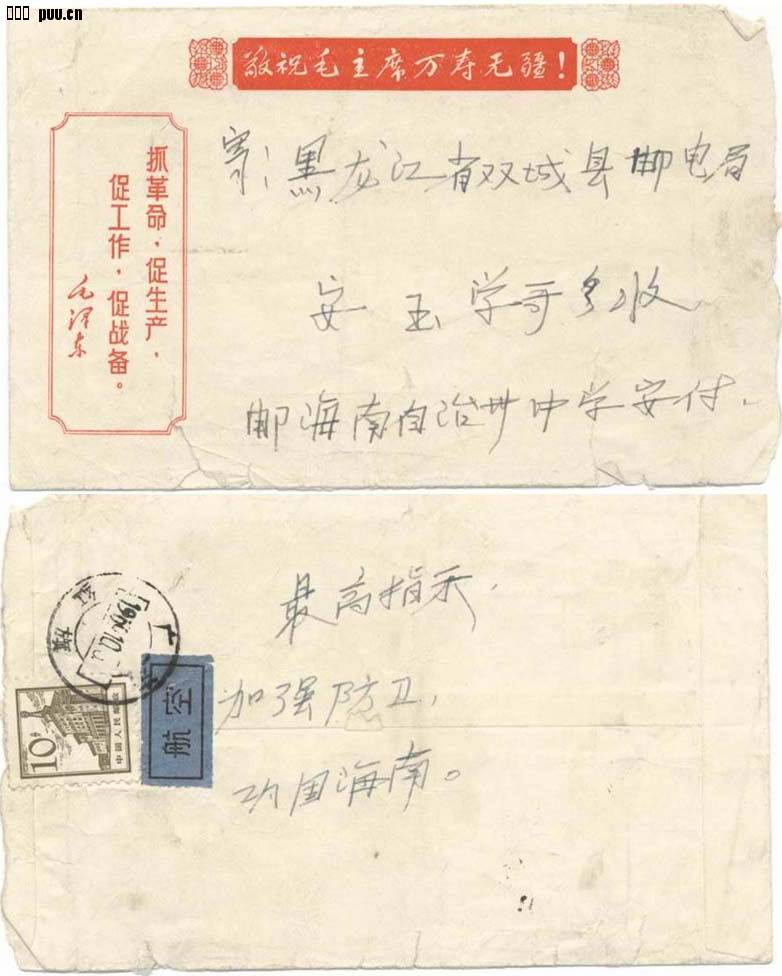 puu.cn
敬祝毛主席万寿无疆！
抓革命，促生产，
促工作，促战备。
毛泽东
寄：黑龙江省双城县邮电局
安玉学哥 收
邮海南自治州中学安付.
最高指示，
加强防卫，
巩固海南。
航空
10
中国人民邮政